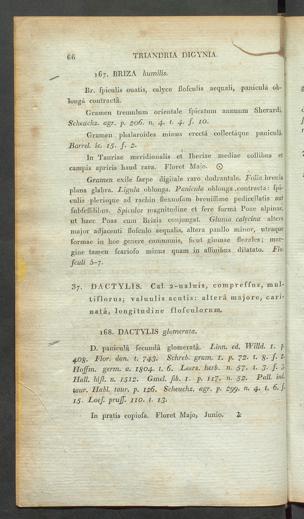 66 TRIANDRIA DIGYNIA.
167. BRIZA humilis.
Br. spiculis ouatis, calyce flosculis aequali, panicula ob-
longâ contractâ.
Gramen tremulum orientale spicatum annuum Sherardi.
Scheuchz. agr. p. 206. n. 4. t. 4. f. 10.
Gramen phalaroides minus erectâ collectâque paniculâ
Barrel. ic. 15. f. 2.
In Tauriae meridionalis et Iberiae mediae collibus et
campis apricis haud rara. Floret Majo. ☉
Gramen exile saepe digitale raro dodrantale. Folia breuia
plana glabra. Ligula oblonga. Panicula oblonga contracta: spi-
culis plerisque ad rachin flexuosam breuissime pedicellatis aut
subsessilibus. Spiculae magnitudine et fere formâ Poae alpinae,
ut haec Poas cum Brizis conjungat. Gluma calycina altera
major adjacenti flosculo aequalis, altera paullo minor, utraque
formae in hoc genere communis, sicut glumae florales; mar-
gine tamen scarioso minus quam in affinibus dilatato. Flo-
sculi 5-7.
37. DACTYLIS. Cal. 2-valuis, compressus, mul-
tiflorus; valuulis acutis: alterâ majore, cari-
natâ, longitudine flosculorum.
168. DACTYLIS glomerata.
D. paniculâ secundâ glomeratâ. Linn. ed. Willd. 1. p.
408. Flor. dan. t. 743. Schreb. gram. 1. p. 72. t. 8. f. 2.
Hoffm. germ. a. 1804. t. 6. Leers. herb. n. 57. t. 3. f. 3.
Hall. hist. n. 1512. Gmel. sib. 1. p. 117. n. 52. Pall. ind.
taur. Habl. taur. p. 126. Scheuchz. agr. p. 299. n. 4. t. 6. f.
15. Loes. pruss. 110. t. 13.
In pratis copiosa. Floret Majo, Junio. ♃